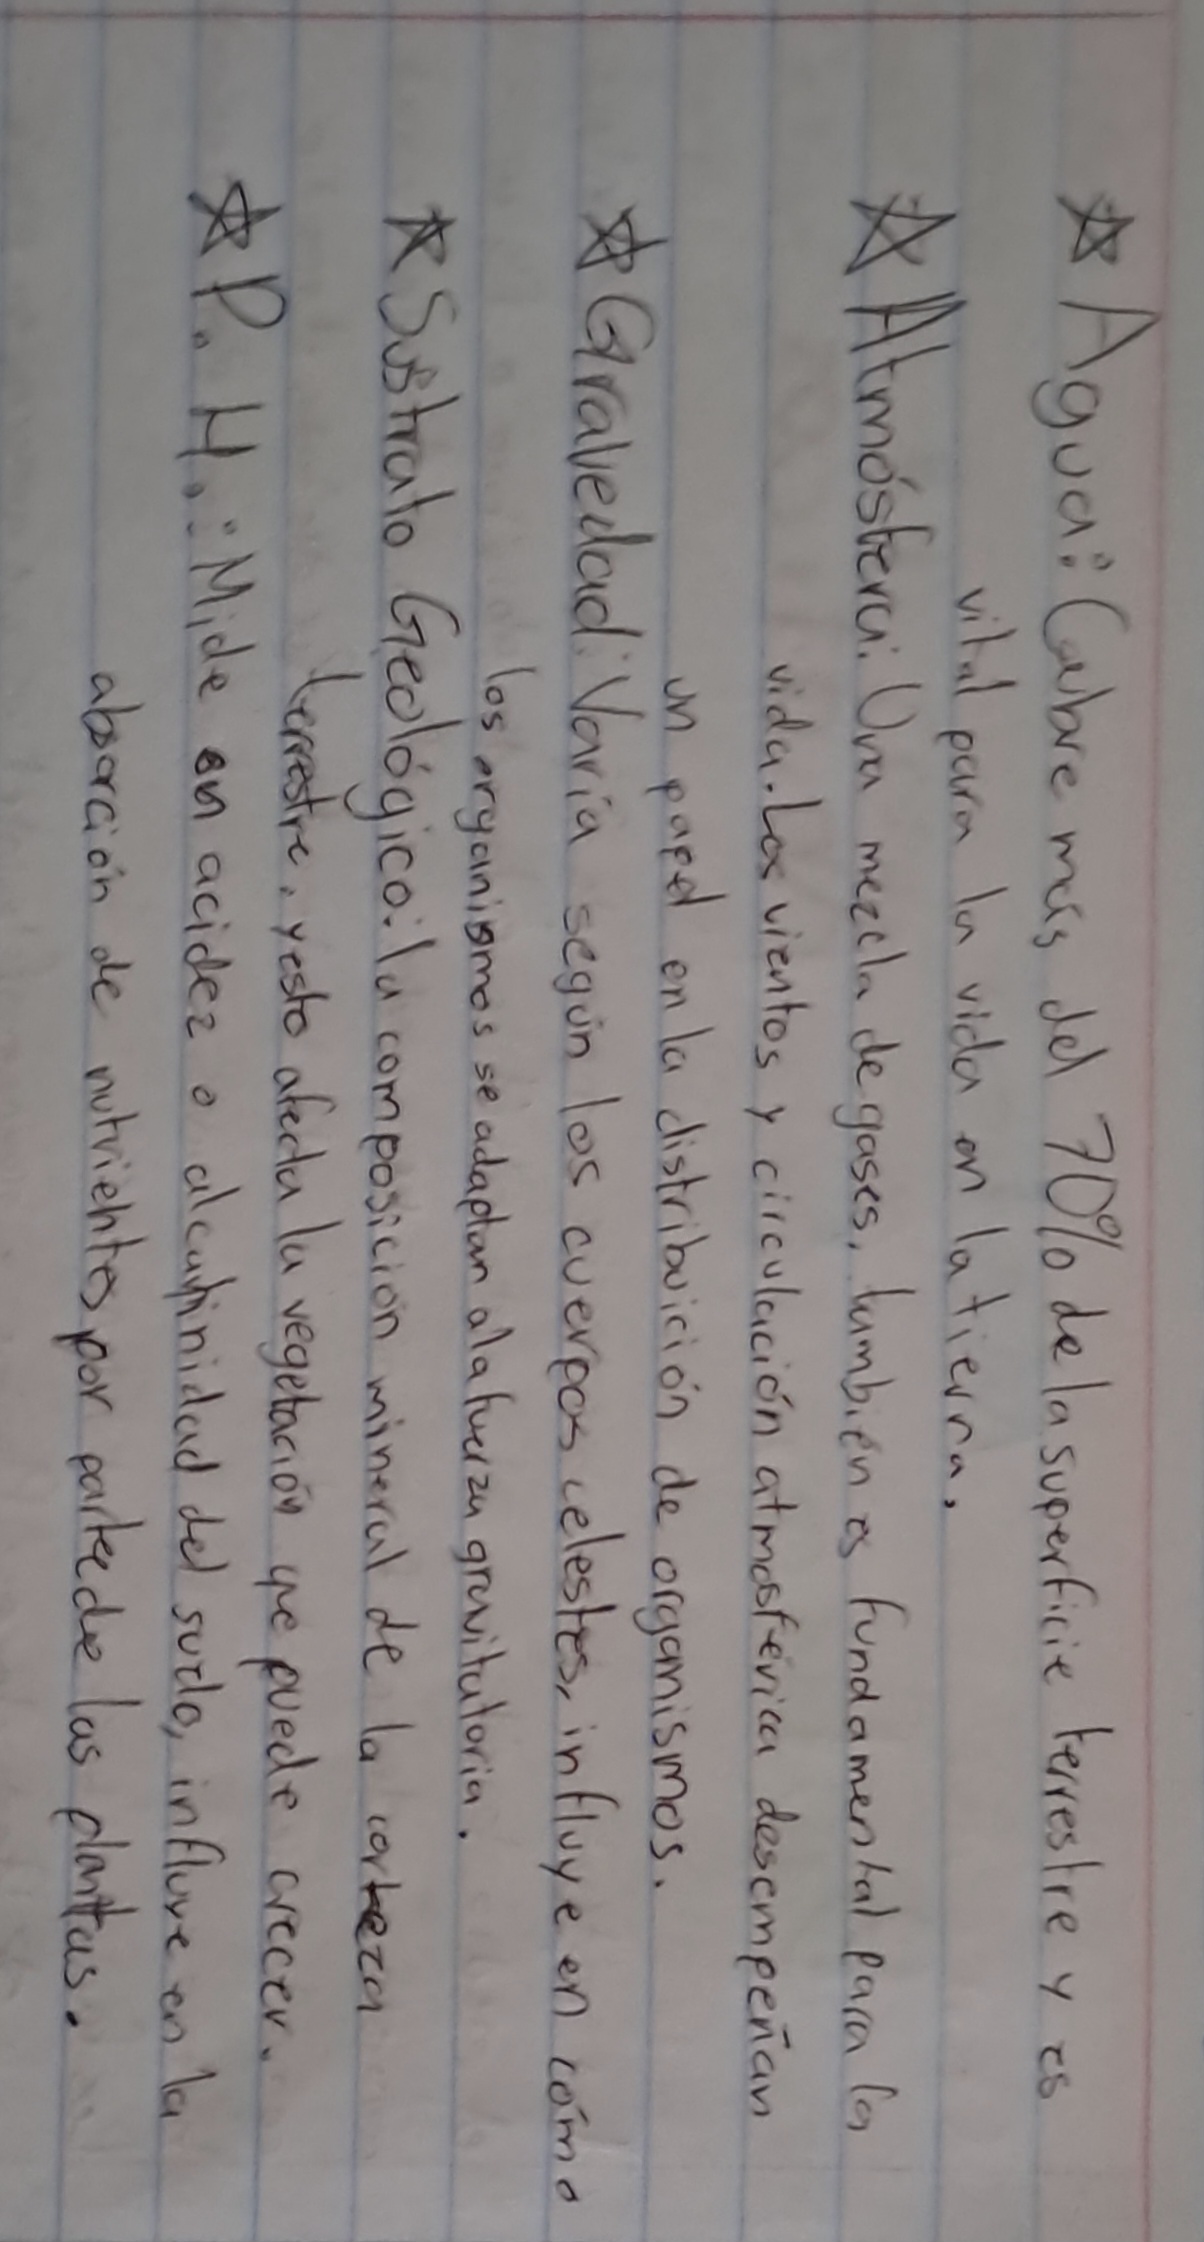 ☆ Agua: Cubre más del 70% de la superficie terrestre y es
vital para la vida en la tierra.
☆ Atmósfera: Una mezcla de gases, también es fundamental para la
vida. Los vientos y circulación atmosférica desempeñan
un papel en la distribuición de organismos.
☆ Gravedad: Varía según los cuerpos celestes, influye en cómo
los organismos se adaptan a la fuerza gravitatoria.
☆ Sustrato Geológico: la composición mineral de la corteza
terrestre, y esto afecta la vegetación que puede crecer.
☆ P.H.: Mide en acidez o alcalinidad del suelo, influye en la
absorción de nutrientes por parte de las plantas.